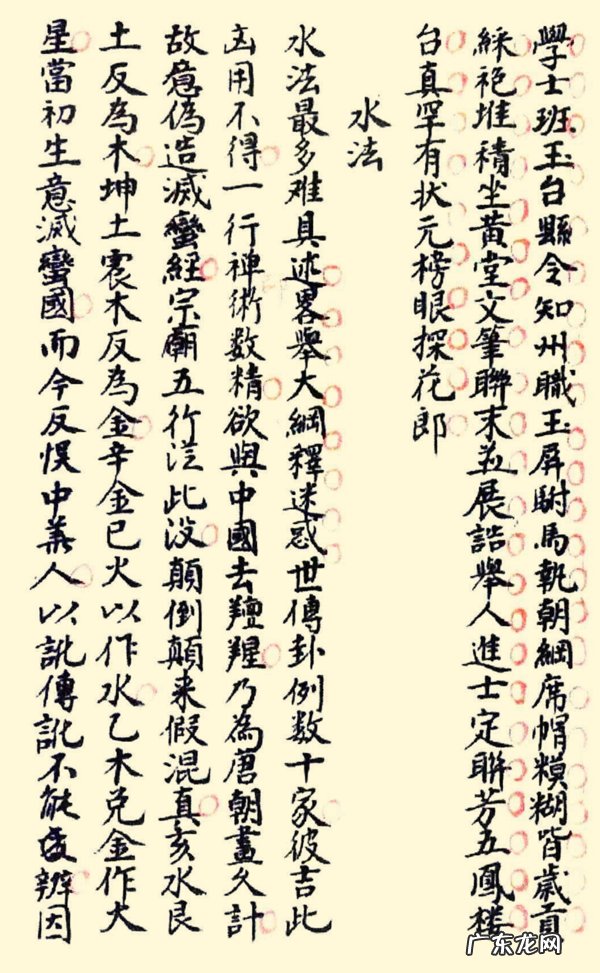 學士班玉台縣令知州職玉屏駙馬執朝綱席帽糢糊皆歲貢
綵袍堆積坐黃堂文筆聯末並展誥舉人進士定聯芳五鳳楼
台真罕有状元榜眼探花郎
水法
水法最多难具述畧舉大綱釋迷惑世傳卦例数十家彼吉此
凶用不得一行禅術数精欲與中國去羶腥乃為唐朝畫久計
故意偽造滅蠻經宗廟五行從此没顛倒顛来假混真亥水艮
土反為木坤土震木反為金辛金巳火以作水乙木兑金作火
星當初生意滅蠻國而今反悮中華人以訛傳訛不能辨因
广东龙网